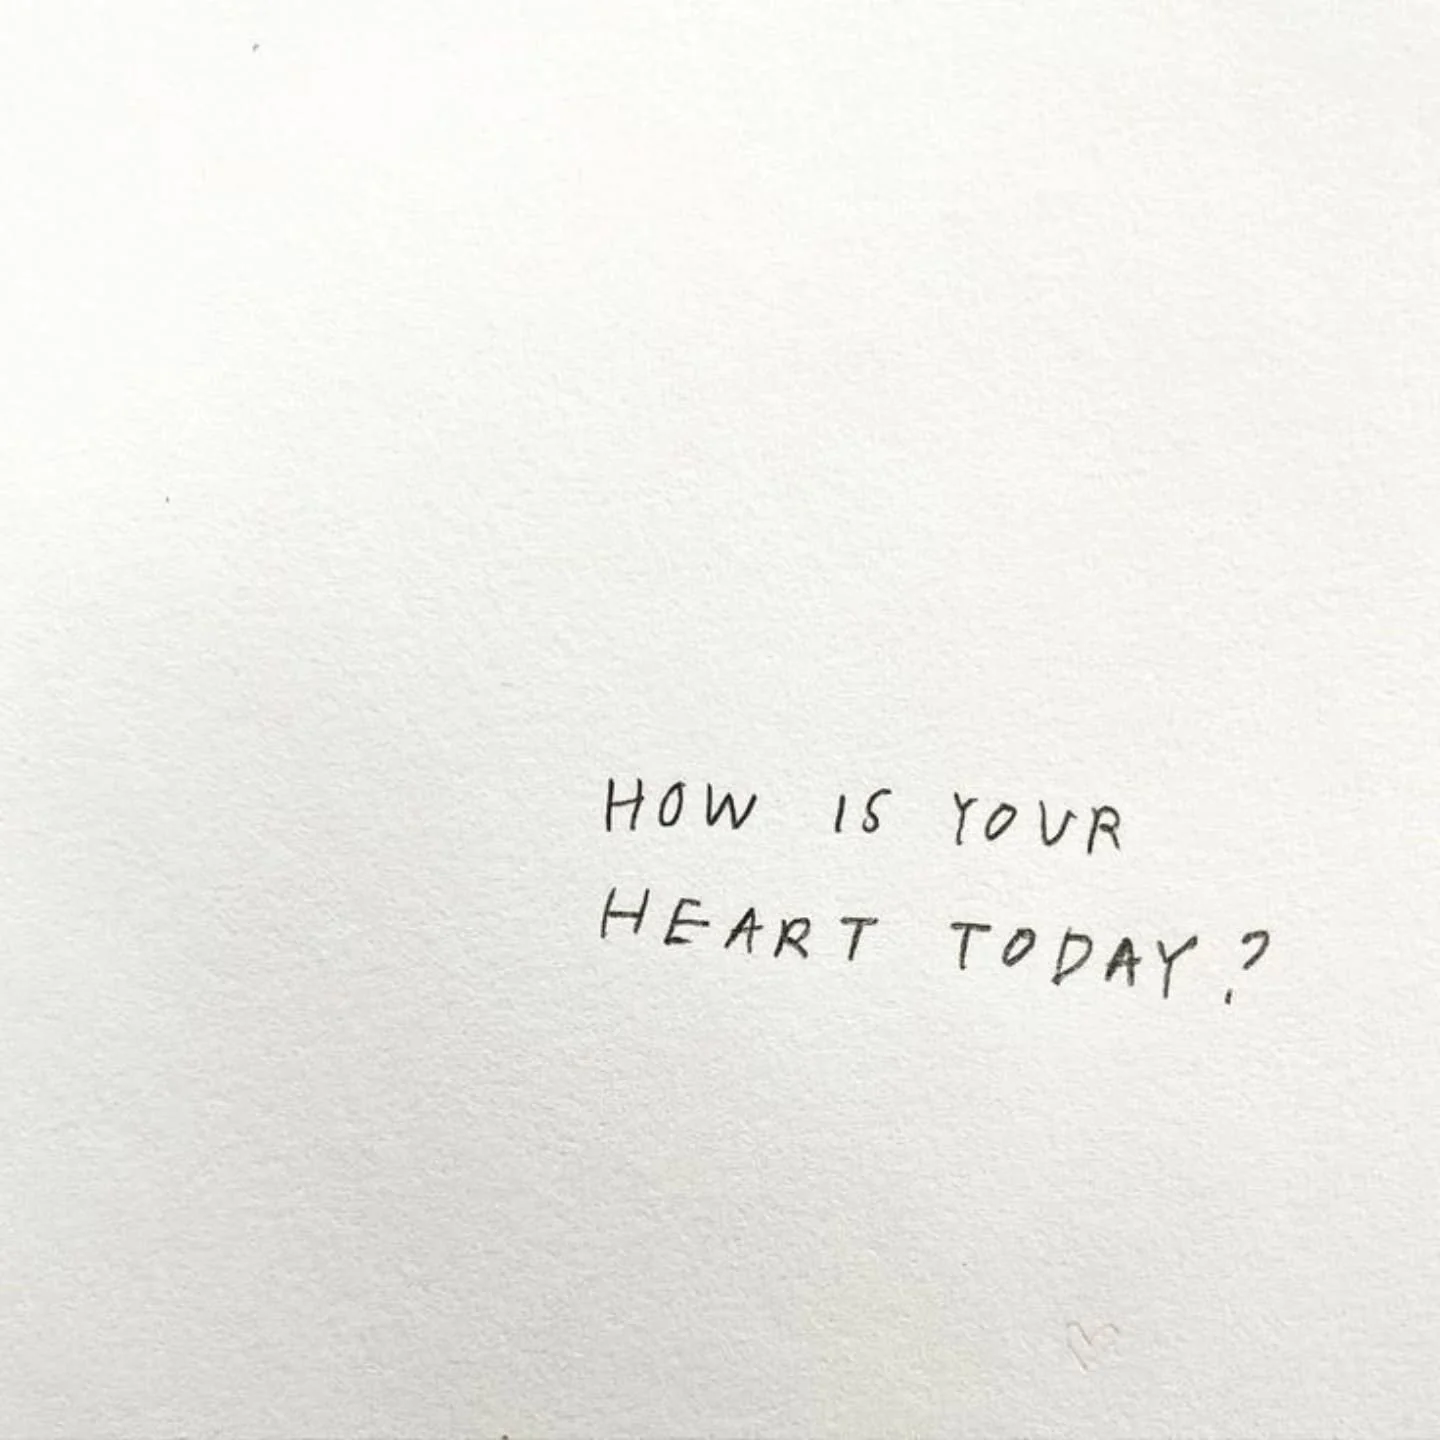 HOW IS YOUR
HEART TODAY?